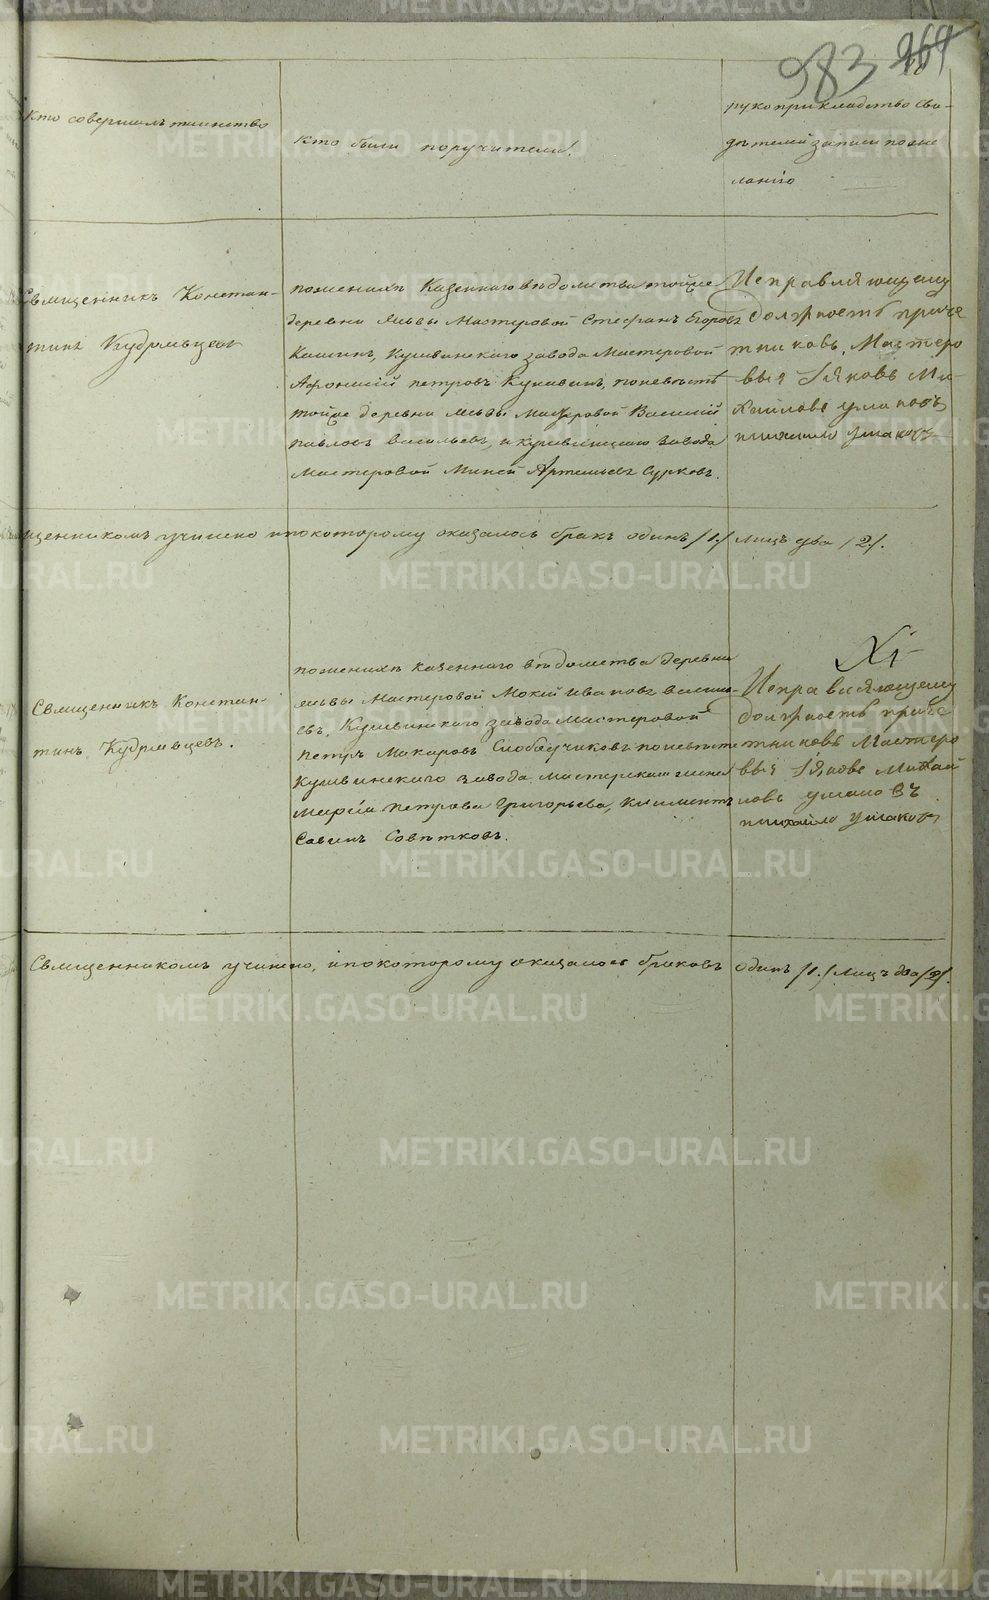 983 264
Кто совершалъ таинство
Кто были поручители.
рукоприкладство сви-
дѣтелей записи по же
ланiю
Священникъ Констан-
тинъ Кудрявцевъ
по женихѣ казеннаго вѣдомства тойже
деревни Лывы Мастеровой Стефанъ Егоровъ
Кашинъ, Кушвинскаго завода Мастеровой
Афонасiй петровъ, поневѣстѣ
тойже деревни Мастеровой Василiй
павловъ васильевъ, и Кушвинскаго завода
Мастеровой Миней Артемьевъ Сурковъ.
Исправляющему
должность приче
тниковъ, Мастеро
выя Iяковъ Ми-
хайловъ ушаковъ
михаило ушаковъ
щенникомъ учинено ипокоторому оказалось бракъ одинъ /1./ лицъ два /2/.
Священникъ Констан-
тинъ Кудрявцевъ.
по женихѣ казеннаго вѣдомства деревни
Лывы Мастеровой Мокiй ивановъ василь-
евъ, Кушвинскаго завода Мастеровой
петръ Макаровъ Слободчиковъ поневѣсте
Кушвинскаго завода мастерская жена
Марѳа петрова Григорьева, Климентъ
Савинъ Совѣтковъ.
Xi
Исправляющему
должность приче
тниковъ Мастеро
выя Iяковъ Михай
ловъ ушаковъ
михайло ушаковъ
Священникомъ учинено, ипокоторому оказалось браковъ одинъ /1./ лицъ два /2/.
METRIKI.GASO-URAL.RU